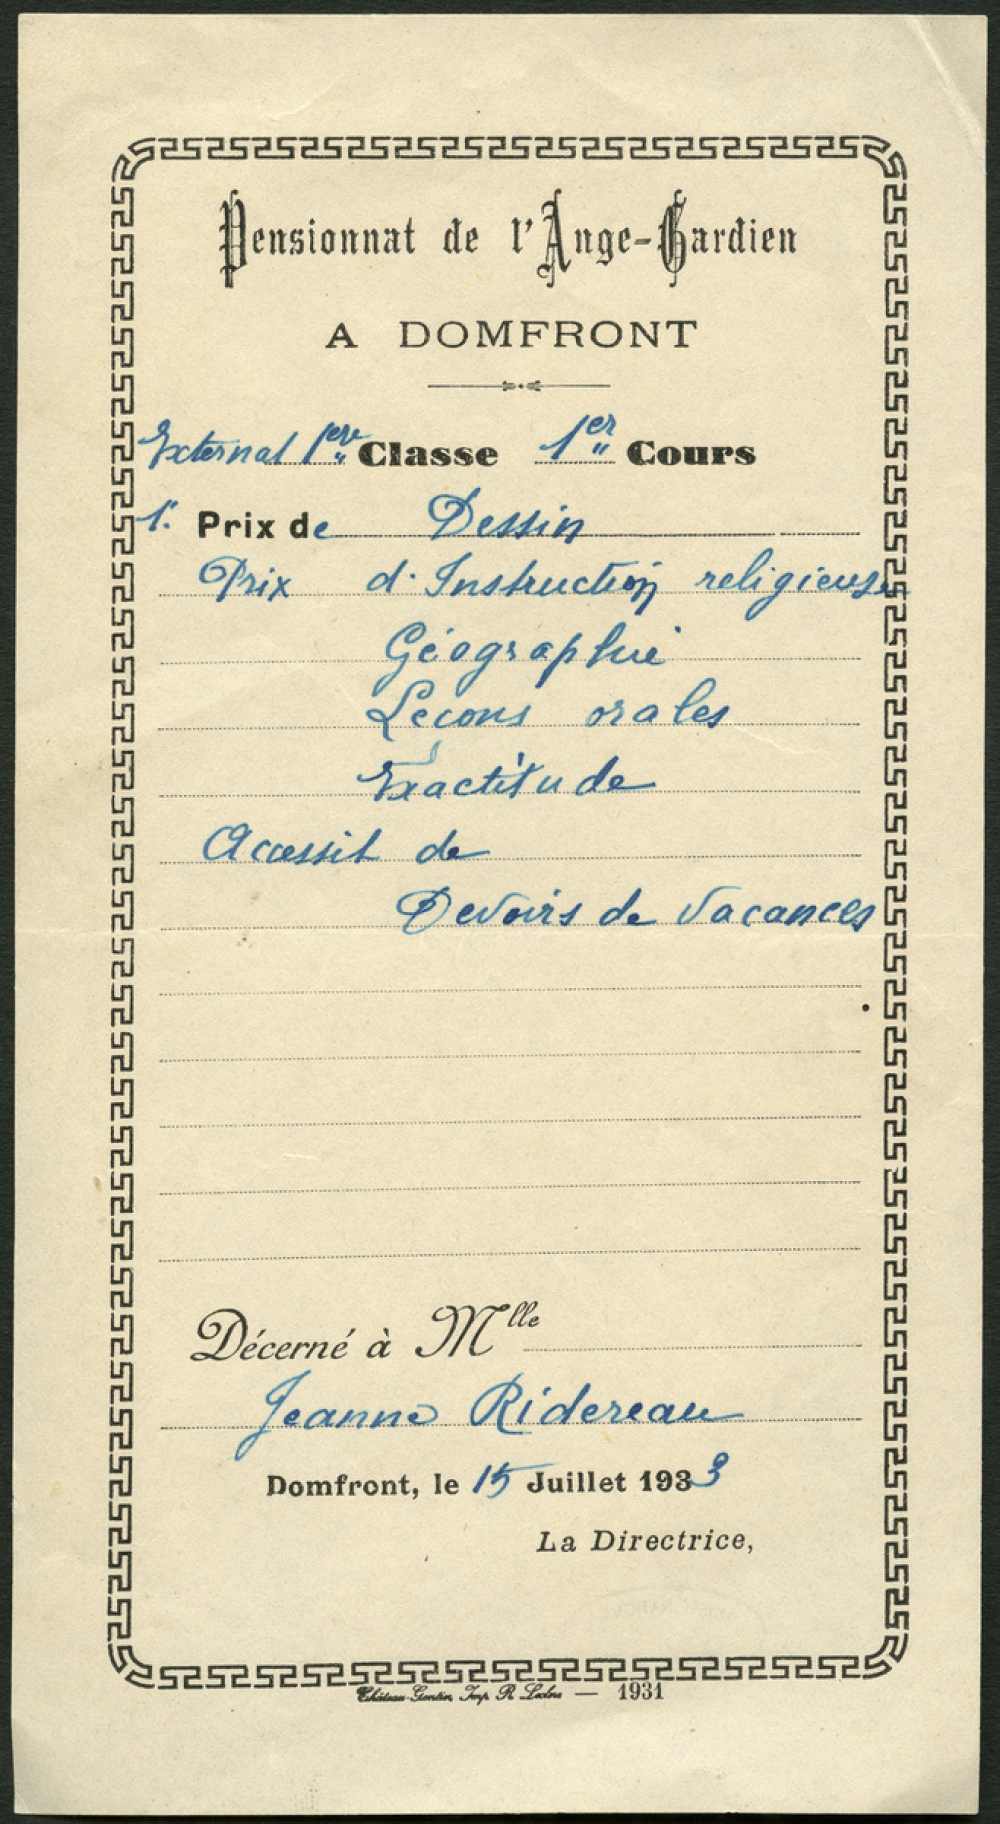 Pensionnat de l'Ange-Gardien
A DOMFRONT
Externat 1ère Classe 1er Cours
1r. Prix de Dessin
Prix d'Instruction religieuse
Géographie
Leçons orales
Exactitude
Accessit de
Devoirs de vacances
Décerné à Mlle
Jeanne Ridereau
Domfront, le 15 Juillet 1933
La Directrice,
Château-Gontier, Imp. R. Leclerc — 1931